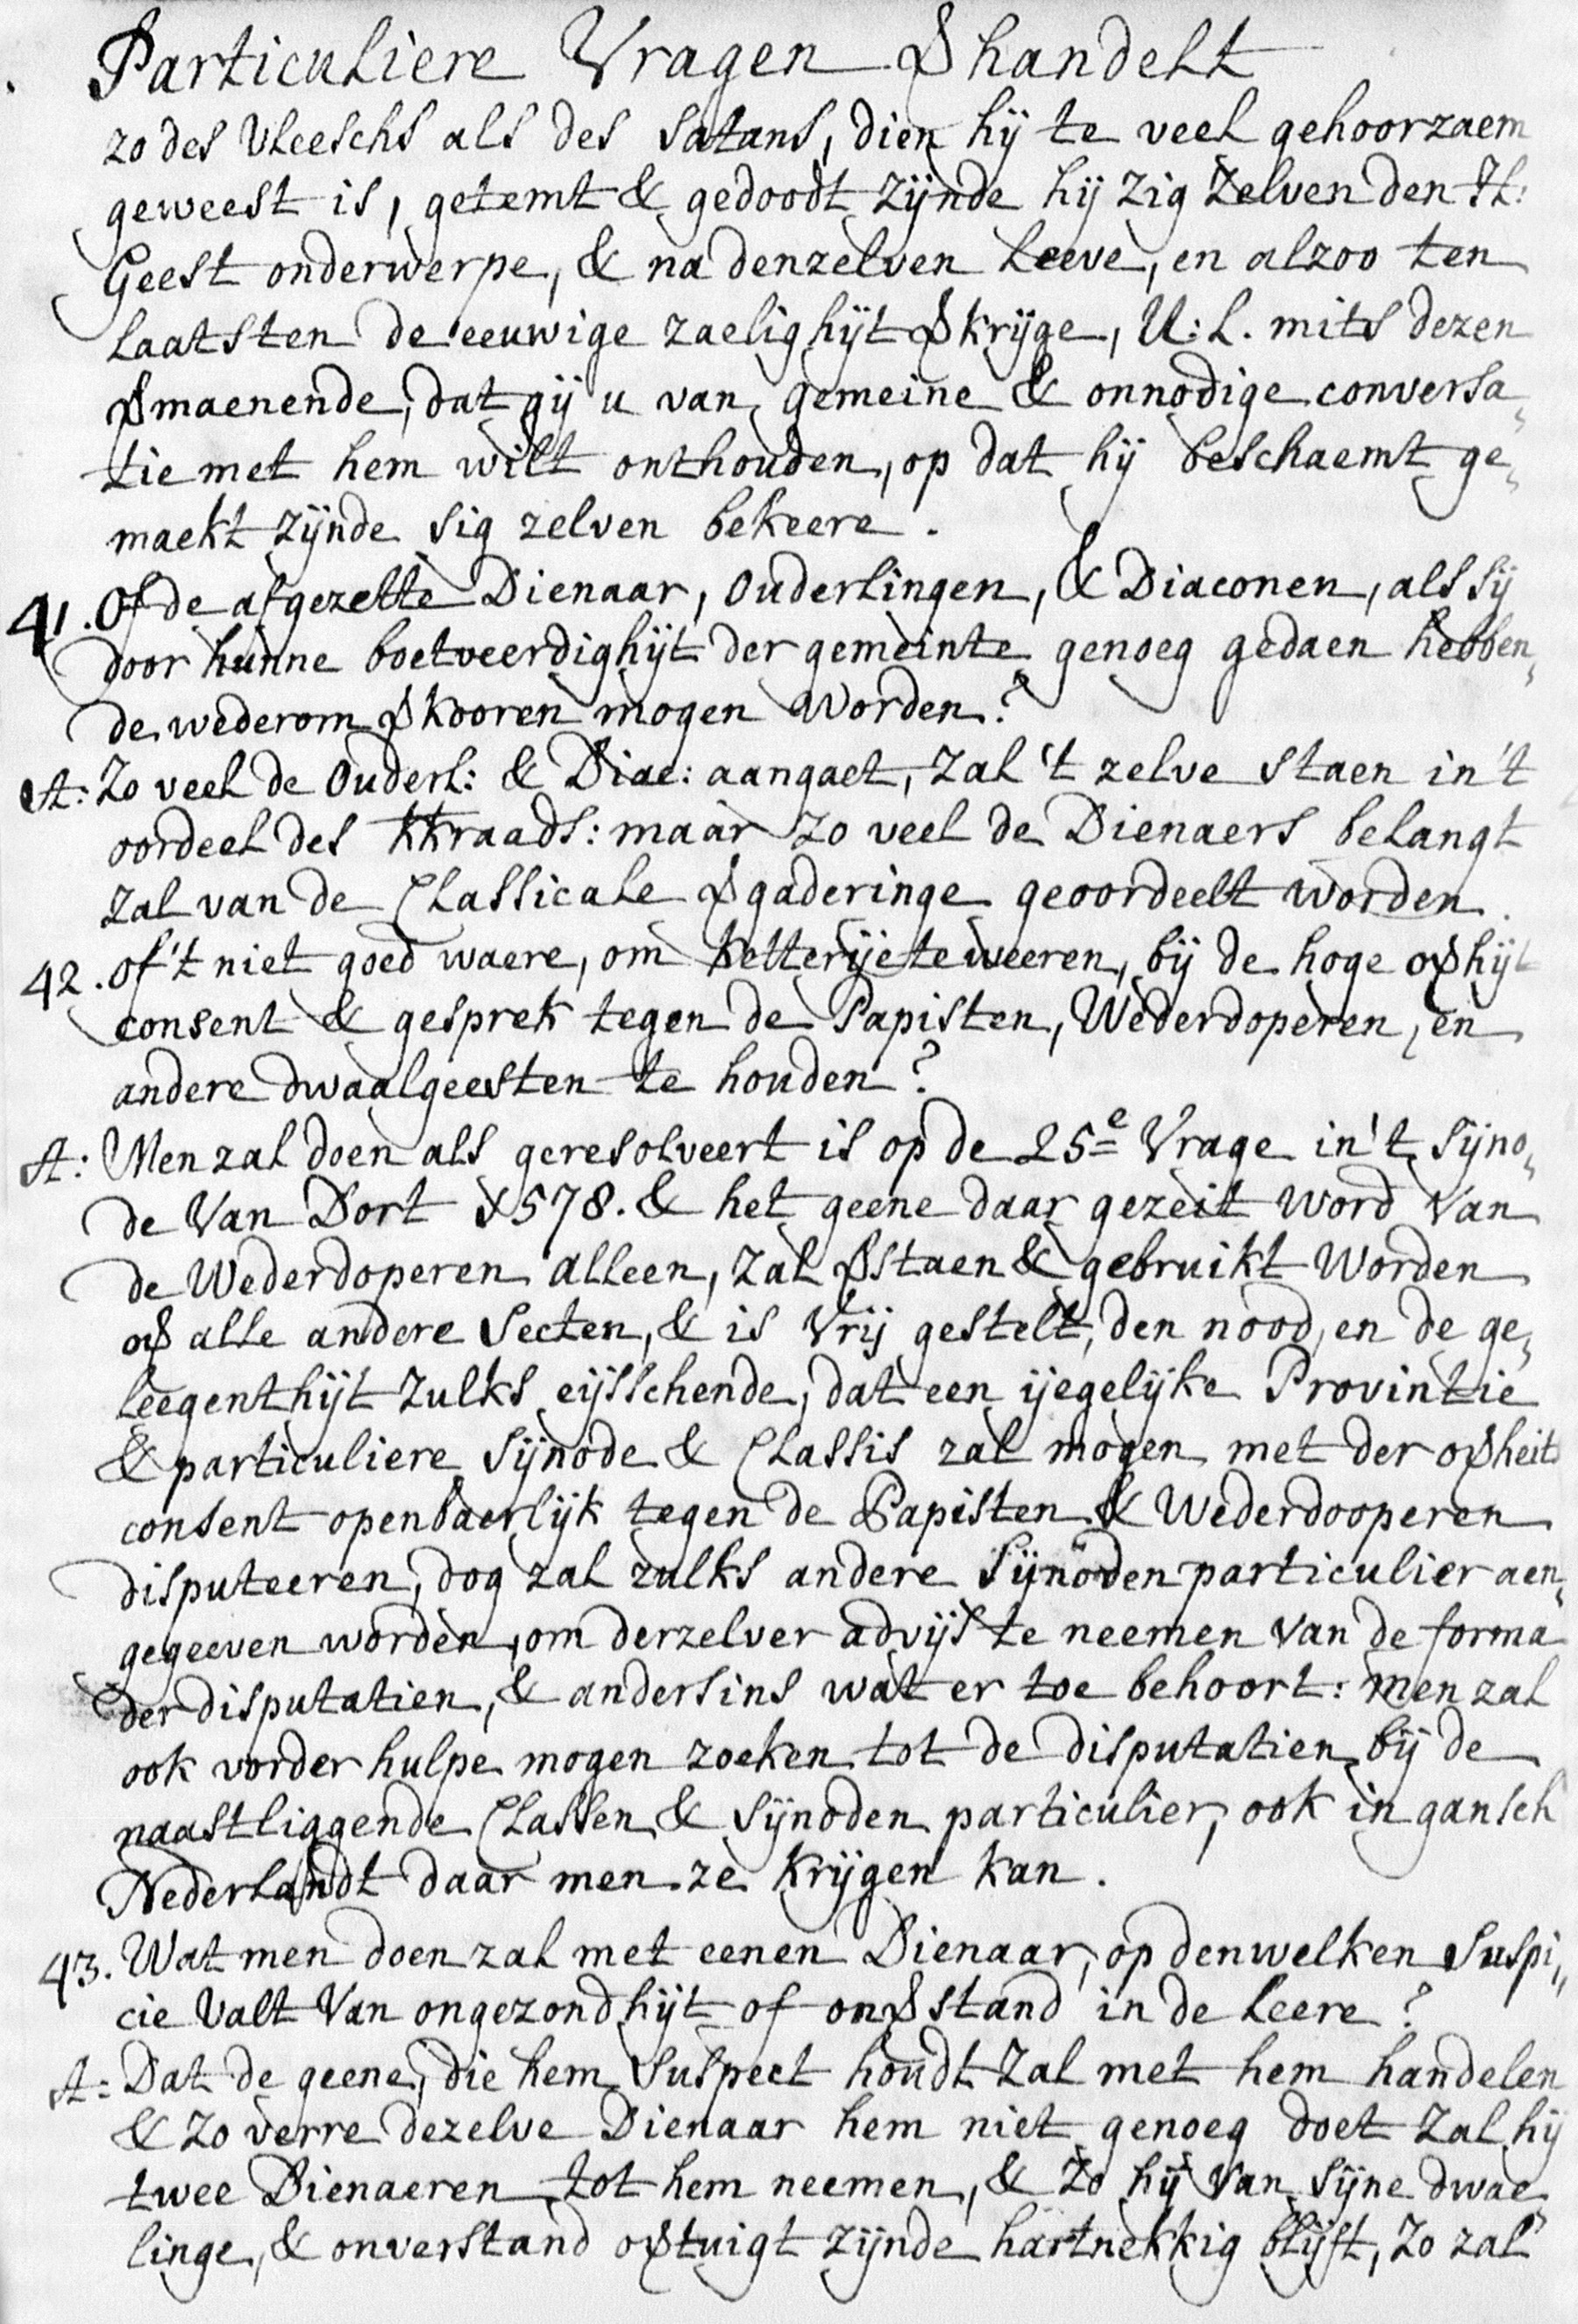 Particuliere Vragen ꝟhandelt
zo des Vleeschs als des Satans, dien hij te veel gehoorzaem
geweest is, getemt & gedoodt zijnde hij zig zelven den H:
Geest onderwerpe, & na denzelven leeve, en alzoo ten
laatsten de eeuwige zaelighijt ꝟkrijge, U:L. mits dezen
ꝟmaenende, dat gij u van gemeine & onnodige conversa„
tie met hem wilt onthouden, op dat hij beschaemt ge„
maekt zijnde sig zelven bekeere.
41. Of de afgezette Dienaar, Ouderlingen, & Diaconen, als sij
door hunne boetveerdighijt der gemeinte genoeg gedaen hebben„
de wederom ꝟkooren mogen worden?
A: Zo veel de Ouderl: & Diac: aangaet, zal 't zelve staen in 't
oordeel des kkraads: maar zo veel de Dienaers belangt
zal van de Classicale ꝟgaderinge geoordeelt worden.
42. Of 't niet goed waere, om ketterije te weeren, bij de hoge oꝟhijt
consent & gesprek tegen de Papisten, Wederdoperen, en
andere dwaalgeesten te houden?
A: Men zal doen als geresolveert is op de 25e Vrage in 't Sijno„
de Van Dort 1578. & het geene daar gezeit word Van
de Wederdoperen alleen, zal ꝟstaen & gebruikt worden
oꝟ alle andere Secten, & is Vrij gestelt, den nood, en de ge„
leegenthijt zulks eijsschende, dat een ijegelijke Provintie
& particuliere Sijnode & Classis zal mogen met der oꝟheits
consent openbaerlijk tegen de Papisten & Wederdooperen
disputeeren, dog zal zulks andere Sijnoden particulier aen„
gegeeven worden, om derzelver advijs te neemen van de forma
der disputatien, & andersins wat er toe behoort: men zal
ook vorder hulpe mogen zoeken tot de disputatien bij de
naastliggende Classen & Sijnoden particulier, ook in gansch
Nederlandt daar men ze krijgen kan.
43. Wat men doen zal met eenen Dienaar, op denwelken Suspi„
cie Valt Van ongezondhijt of onꝟstand in de leere?
A: Dat de geene, die hem Suspect houdt zal met hem handelen
& zo verre dezelve Dienaar hem niet genoeg doet zal hij
twee Dienaeren tot hem neemen, & zo hij Van Sijne dwae„
linge, & onverstand oꝟtuigt zijnde hartnekkig blijft, zo zal